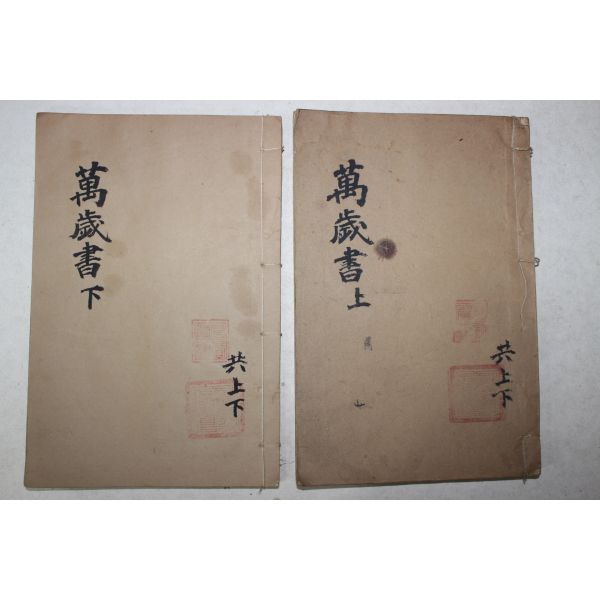 萬歲書下
共上下
萬歲書上
共上下